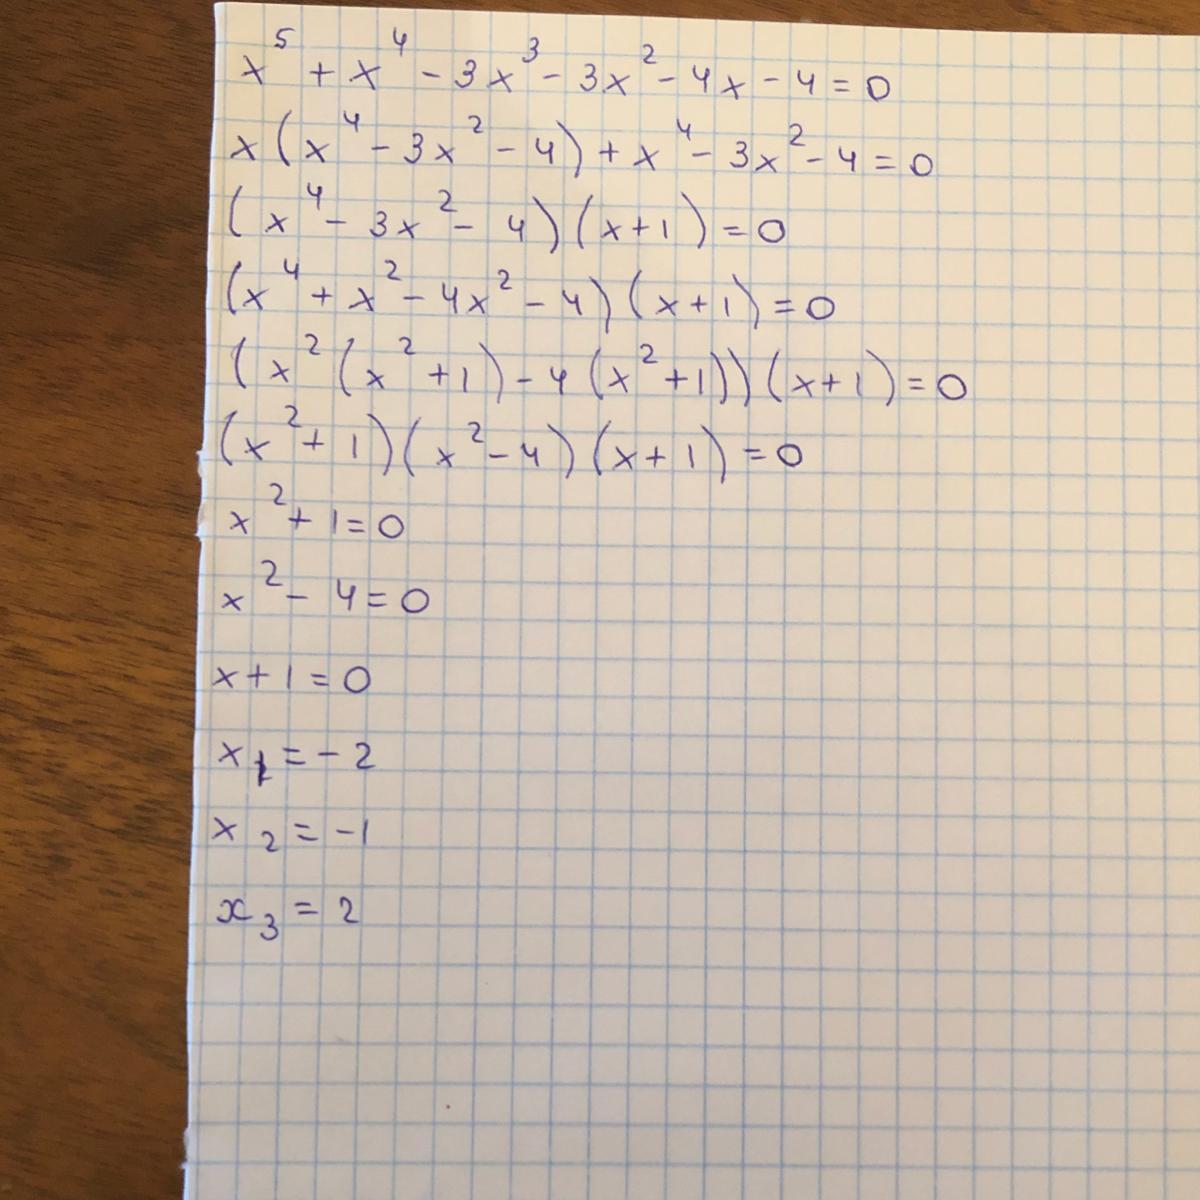 x⁵ + x⁴ - 3x³ - 3x² - 4x - 4 = 0
x(x⁴ - 3x² - 4) + x⁴ - 3x² - 4 = 0
(x⁴ - 3x² - 4)(x+1) = 0
(x⁴ + x² - 4x² - 4)(x+1) = 0
(x²(x²+1) - 4(x²+1))(x+1) = 0
(x²+1)(x²-4)(x+1) = 0
x² + 1 = 0
x² - 4 = 0
x + 1 = 0
x₁ = -2
x₂ = -1
x₃ = 2